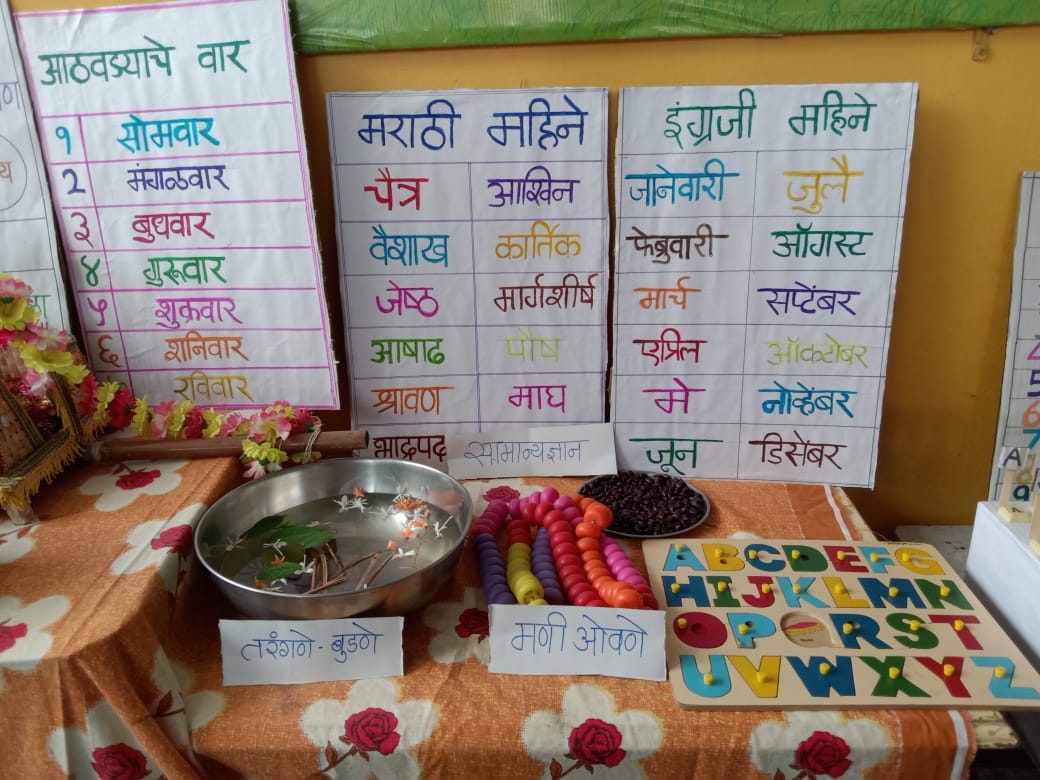 आठवड्याचे वार
१ सोमवार
२ मंगळवार
३ बुधवार
४ गुरूवार
५ शुक्रवार
६ शनिवार
रविवार
मराठी महिने
चैत्र आश्विन
वैशाख कार्तिक
जेष्ठ मार्गशीर्ष
आषाढ पौष
श्रावण माघ
भाद्रपद
इंग्रजी महिने
जानेवारी जुलै
फेब्रुवारी ऑगस्ट
मार्च सप्टेंबर
एप्रिल ऑक्टोबर
मे नोव्हेंबर
जून डिसेंबर
सामान्यज्ञान
तरंगणे - बुडणे
मणी ओवणे
ABCDEFG
HIJKLMN
OP RST
UVWXYZ